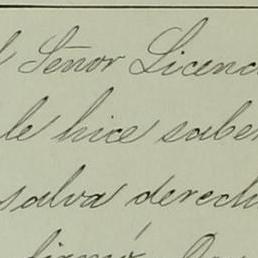 l Señor Licenc
le hice saber
salva derech
firmó.